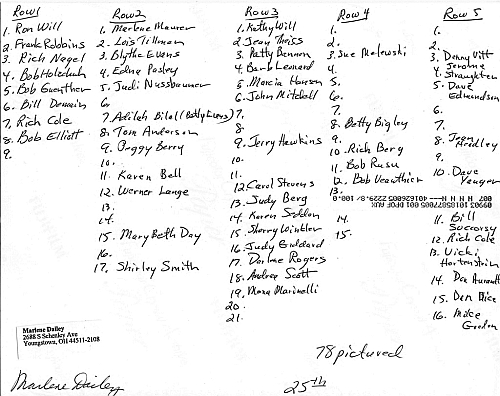 Row1
1. Ron Will
2. Frank Robbins
3. Rich Nagel
4. Bob Holcduch
5. Bob Guenther
6. Bill Domain
7. Rich Cole
8. Bob Elliott
9.
Row2
1. Marlene Maurer
2. Lois Tillman
3. Blythe Evans
4. Edna Pasley
5. Judi Nussbaumer
6.
7. Adilah Bilal (Betty Evans)
8. Tom Anderson
9. Peggy Berry
10.
11. Karen Bell
12. Werner Lange
13.
14.
15. Mary Beth Day
16.
17. Shirley Smith
Row 3
1. Kathy Will
2. Jean Theiss
3. Patty Bennon
4. Barb Leonard
5. Marcia Hansen
6. John Mitchell
7.
8.
9. Jerry Hawkins
10.
11.
12. Carol Stevens
13. Judy Berg
14. Karen Seddon
15. Sherry Winkler
16. Judy Goddard
17. Darlene Rogers
18. Andrea Scott
19. Mona Marinelli
20.
21.
Row 4
1.
2.
3. Sue Malewski
4.
5.
6.
7.
8. Betty Bigley
9.
10. Rich Berg
11. Bob Rusu
12. Bob Veauthier
13.
14.
15.
Row 5
1.
2.
3. Denny Vitt
4. Jerome Straughter
5. Dave Edmundson
6.
7.
8. Jean Hradley
9.
10. Dave Yauger
11. Bill Succorsy
12. Rich Cole
13. Vicki Hortenstein
14. Dea Aurandt
15. Den Rice
16. Mike Gordon
Marlene Dailey
2688 S Schenley Ave
Youngstown, OH 44511-2108
78 pictured
Marlene Dailey
25th